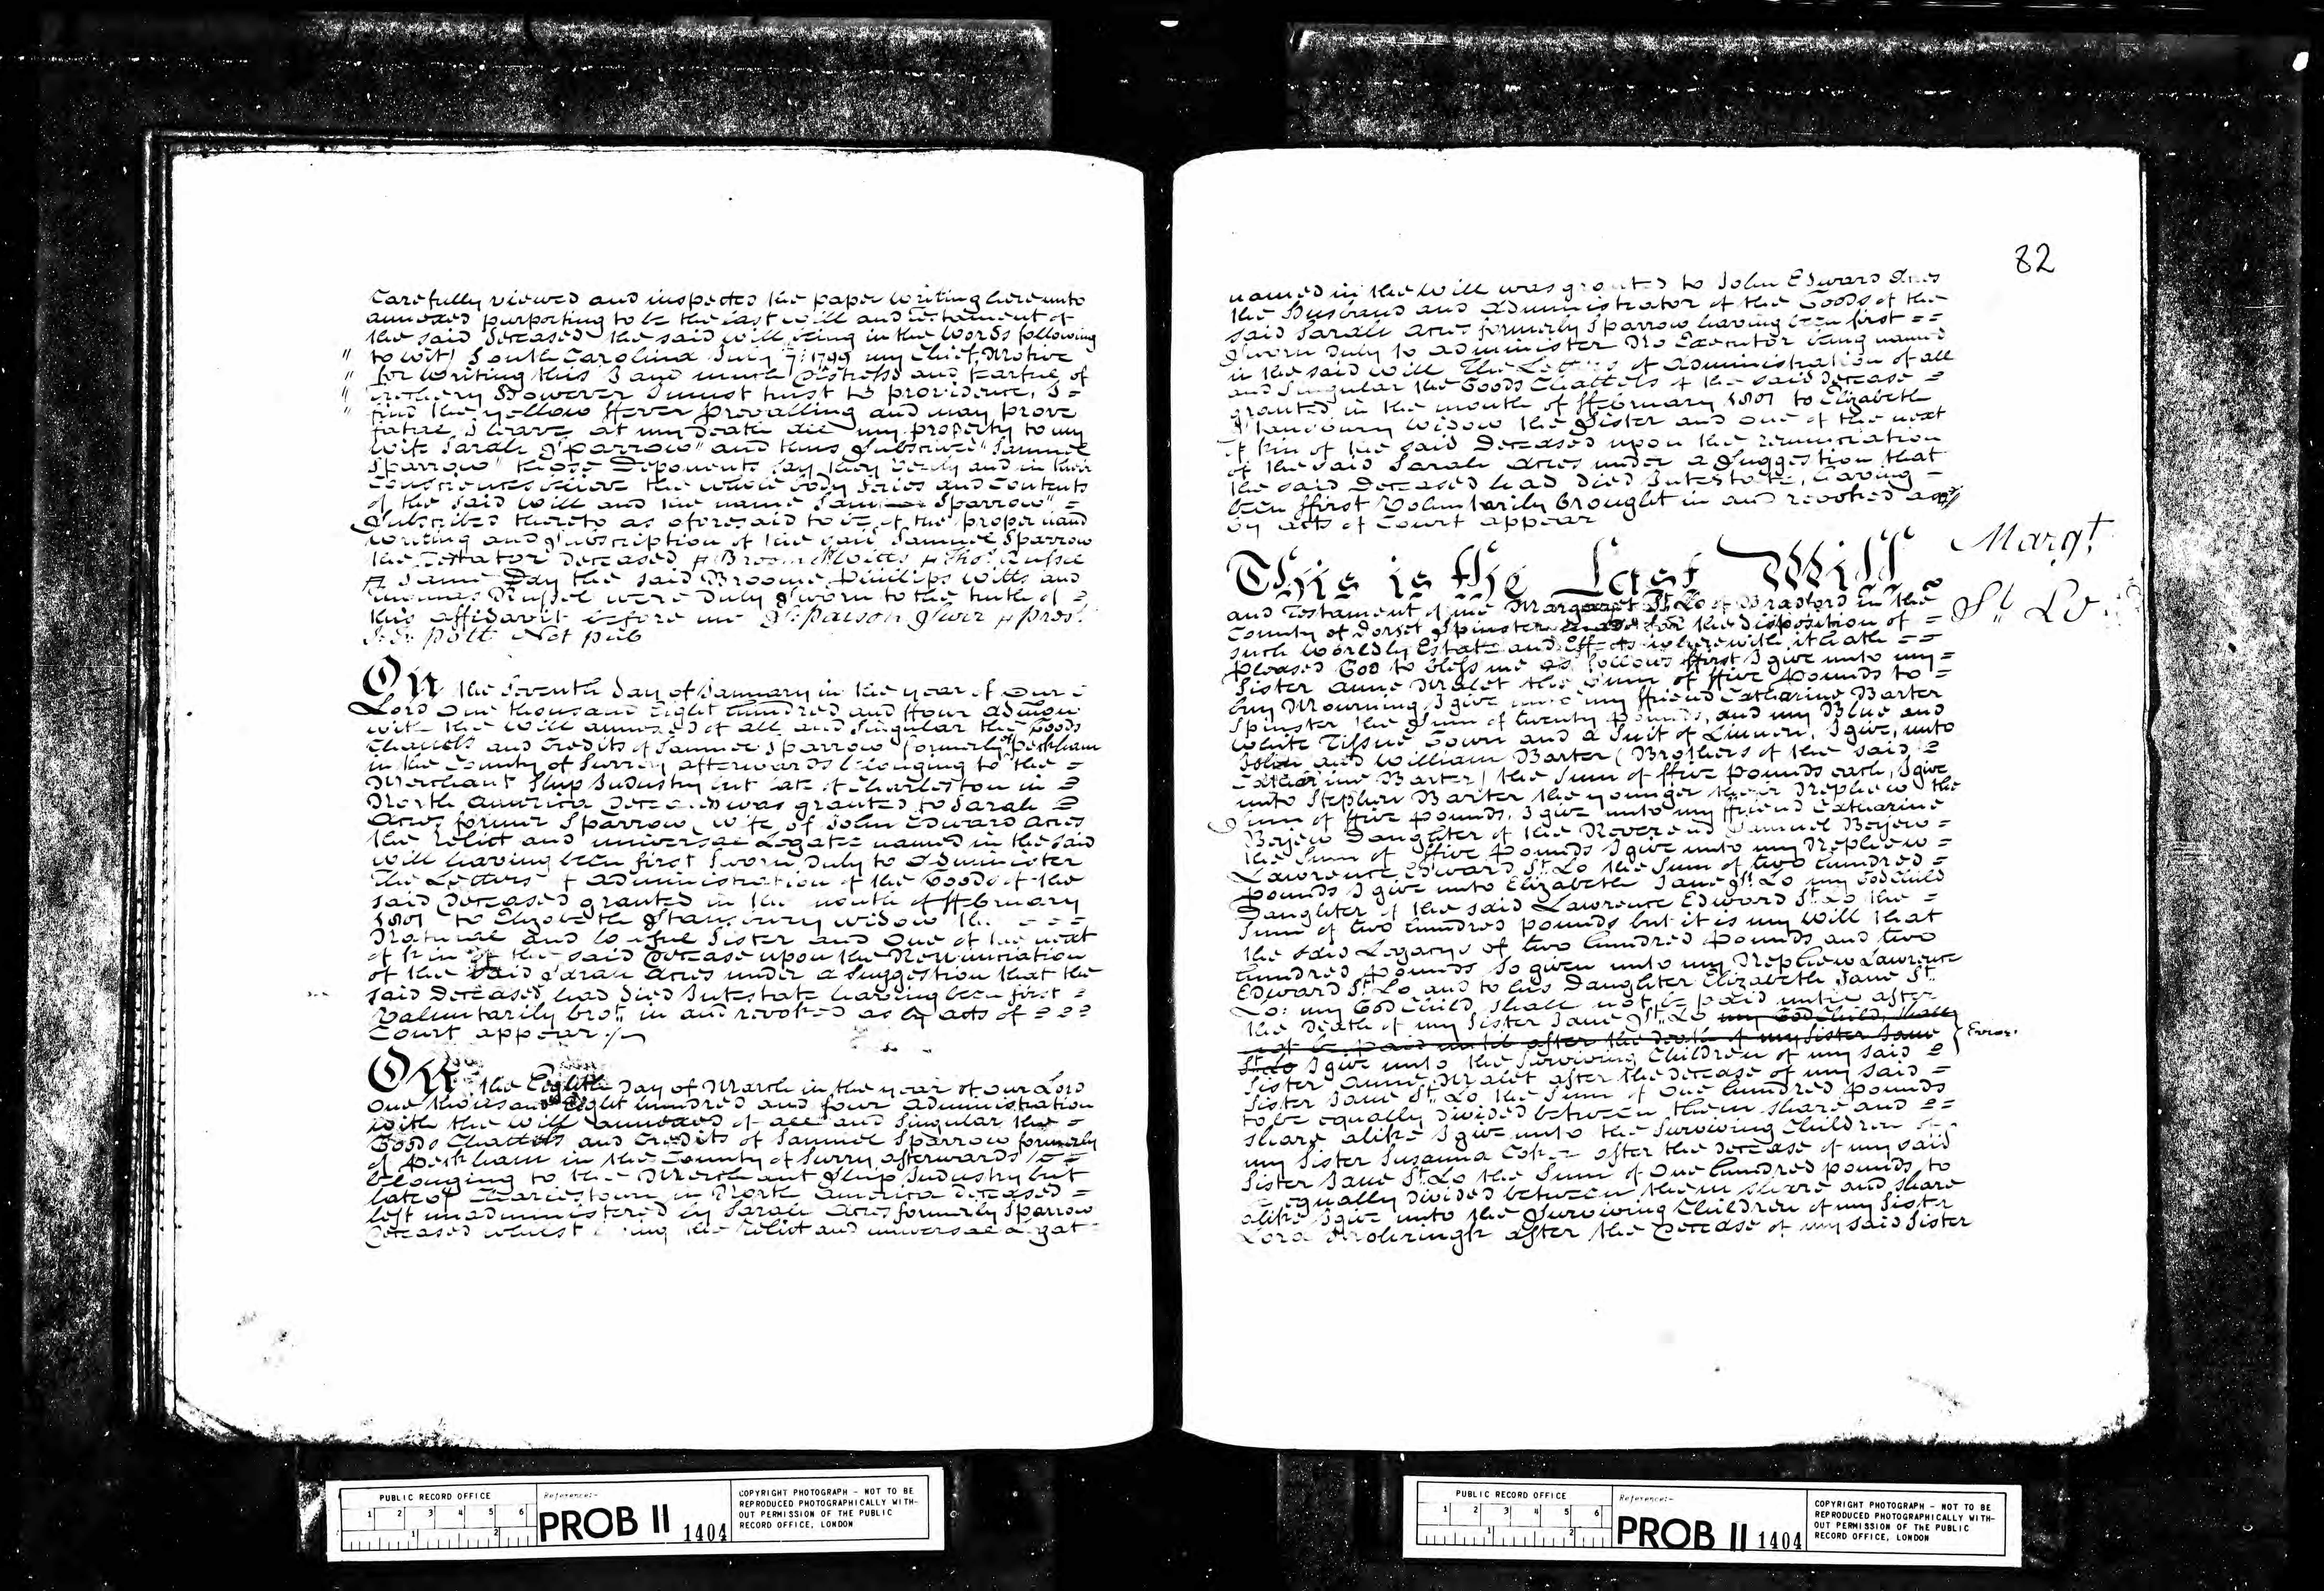 Carefully viewed and inspected the paper writing hereunto
annexed purporting to be the last will and testament of
the said deceased the said will being in the words following
" to wit) South Carolina July 7: 1799 my Chief Motive
" for writing this I am much distress and fearful of
" However I must trust to providence, I =
" find the yellow ffever prevailing and may prove
fatal I leave at my death all my property to my
wife Sarah Sparrow" and thus Subscribed "Samuel
Sparrow" these Deponents say they verily and in their
Consciences believe the whole body Series and Contents
of the said will and the name Samuel Sparrow" =
Subscribed thereto as aforesaid to be of the proper hand
writing and Subscription of the said Samuel Sparrow
the Testator deceased Broom P Witts Thos: Russel
Same Day the said Broome Phillips Witts and
Thomas Russel were duly Sworn to the truth of =
this affidavit before me Parson Surr prest.
Pott Not pub
On the Seventh day of January in the year of Our
Lord One thousand Eight hundred and ffour admon
with the Will annexed of all and Singular the Goods
Chattels and Credits of Samuel Sparrow formerly of Peckham
in the County of Surrey afterwards belonging to the =
Merchant Ship Industry but late of Charleston in =
North America deceased was granted to Sarah =
Acres former Sparrow wife of John Edward Acres
the Relict and universal Legatee named in the said
will having been first sworn duly to administer
The Letters of administration of the Goods of the
said deceased granted in the month of ffebruary
1801 to Elizabeth Stanbury widow the = = =
Natural and lawful Sister and One of the next
of kin of the said Decease upon the Renunciation
of the said Sarah Acres under a Suggestion that the
said Deceased had died Intestate having been first =
Voluntarily brot. in and revoked as by acts of = = =
Court appear
On the Eighth Day of March in the year of our Lord
One thousand Eight hundred and four administration
with the Will annexed of all and Singular the =
Goods Chattels and Credits of Samuel Sparrow formerly
of Peckham in the County of Surry afterwards =
belonging to the Merchant Ship Industry but
late of Charlestown in North America deceased =
left unadministered by Sarah Acres formerly Sparrow
deceased whilst living the Relict and universal Legat
82
named in the Will was granted to John Edward Acres
the Husband and Administrator of the Goods of the
said Sarah Acres formerly Sparrow having been first = =
Sworn duly to administer No Executor being named
in the said Will The Letters of Administration of all
and Singular the Goods Chattels of the said Decease =
granted in the month of ffebruary 1801 to Elizabeth
Stanbury widow the Sister and one of the next
of kin of the said deceased upon the renunciation
of the said Sarah Acres under a Suggestion that
the said Deceased had died Intestate, having =
been ffirst Voluntarily brought in and revoked as
by acts of Court appear
Margt.
St. Lo
This is the Last Will
and Testament of me Margaret St. Lo of Bradford in the
County of Dorset Spinster for the disposition of =
such worldly Estate and Effects wherewith it hath = =
pleased God to bless me as follows ffirst I give unto my =
Sister Anne Malet the Sum of ffive Pounds to =
buy Mourning I give unto my ffriend Catharine Barter
Spinster the Sum of twenty pounds, and my Blue and
White Tissue Gown and a Suit of Linnen, I give, unto
John and William Barter (Brothers of the said =
Catharine Barter) the Sum of ffive pounds each, I give
unto Stephen Barter the younger their Nephew the
Sum of ffive pounds. I give unto my ffriend Catharine
Berjew Daughter of the Reverend Samuel Berjew =
the Sum of ffive pounds I give unto my Nephew =
Lawrence Edward St. Lo the Sum of two hundred =
pounds I give unto Elizabeth Jane St. Lo my God Child
Daughter of the said Lawrence Edward St. Lo the =
Sum of two hundred pounds but it is my Will that
the said Legacys of two hundred pounds and two
hundred pounds so given unto my Nephew Lawrence
Edward St. Lo and to his Daughter Elizabeth Jane St.
Lo: my God Child, shall not be paid until after
the death of my Sister Jane St. Lo my God Child, shall
not be paid until after the death of my Sister Jane
Error.
St. Lo I give unto the Surviving Children of my said =
Sister Anne Malet after the decease of my said =
Sister Jane St. Lo the Sum of One hundred pounds
to be equally divided between them share and = =
share alike I give unto the Surviving Children of
my Sister Susanna Coker after the decease of my said
Sister Jane St. Lo the Sum of One hundred pounds, to
be equally divided between them share and share
alike I give unto the Surviving Children of my Sister
Lora after the Decease of my said Sister
PUBLIC RECORD OFFICE
1 2 3 4 5 6
1 2
Reference:-
PROB 11 1404
COPYRIGHT PHOTOGRAPH - NOT TO BE
REPRODUCED PHOTOGRAPHICALLY WITH-
OUT PERMISSION OF THE PUBLIC
RECORD OFFICE, LONDON
PUBLIC RECORD OFFICE
1 2 3 4 5 6
1 2
Reference:-
PROB 11 1404
COPYRIGHT PHOTOGRAPH - NOT TO BE
REPRODUCED PHOTOGRAPHICALLY WITH-
OUT PERMISSION OF THE PUBLIC
RECORD OFFICE, LONDON